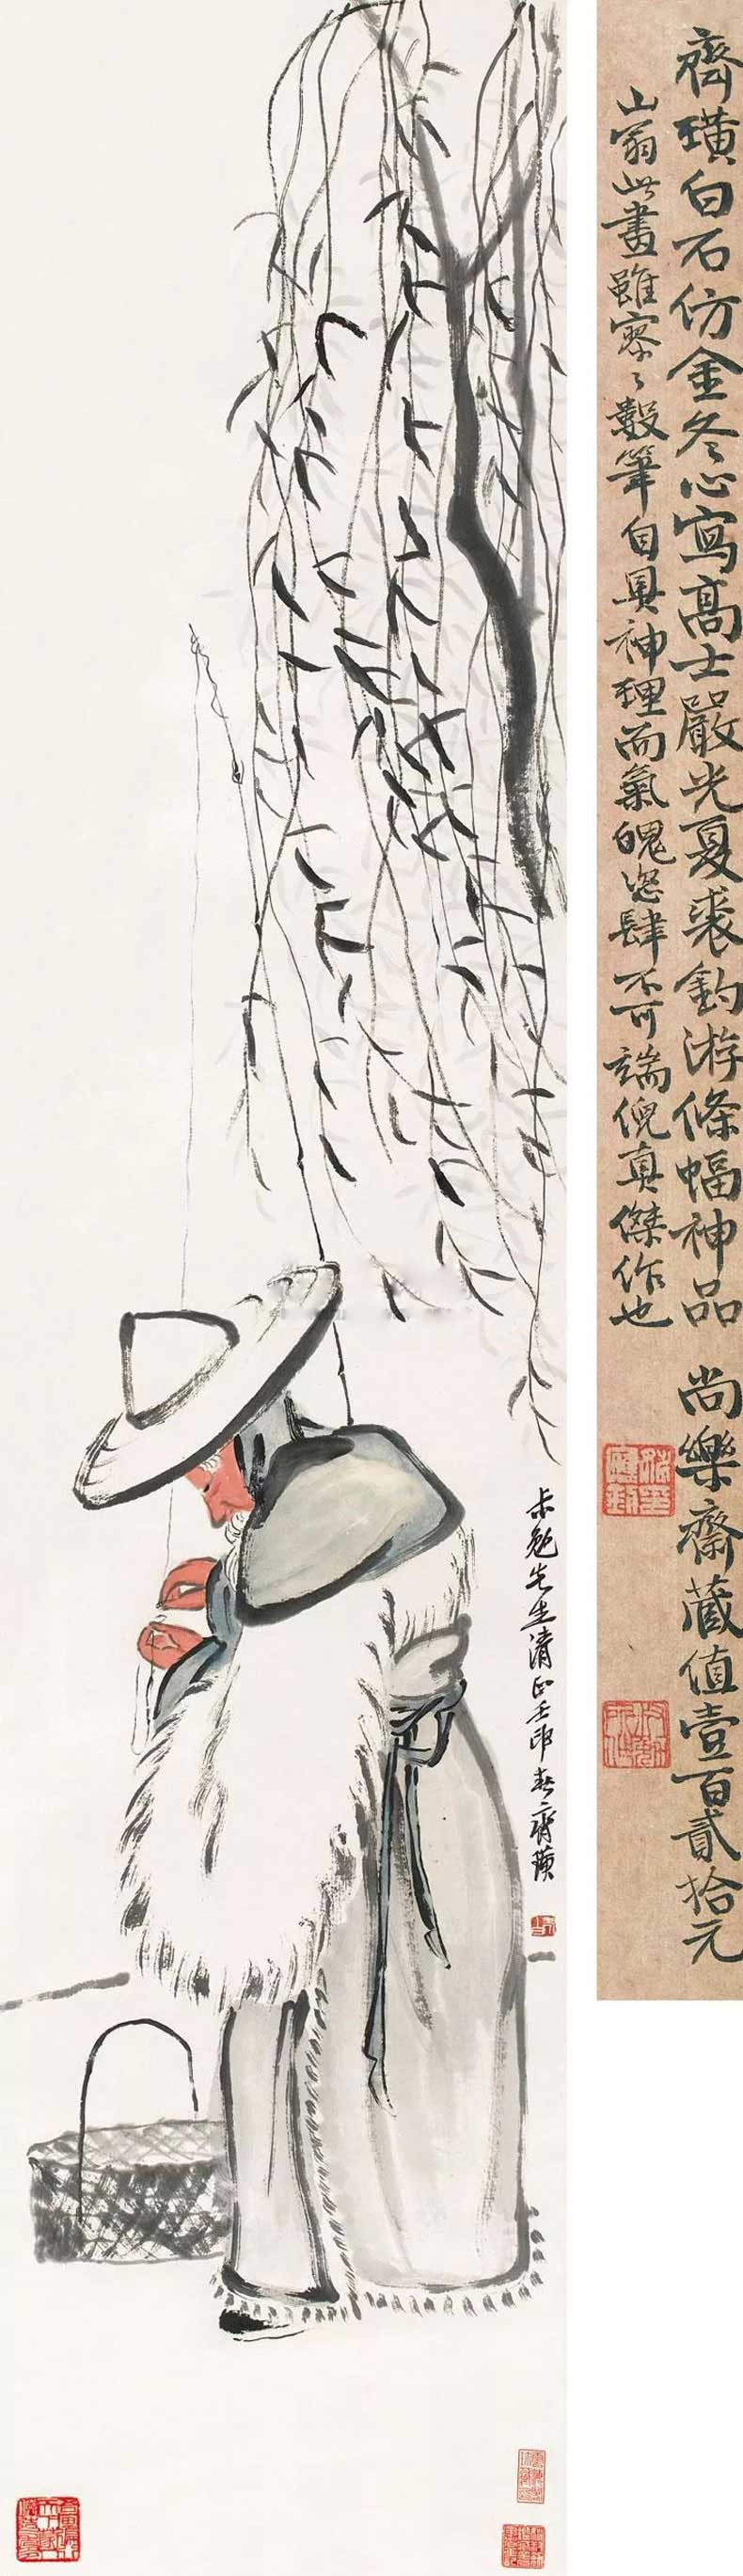 齊璜白石仿金冬心寫高士嚴光夏裘釣游條幅神品　尚樂齋藏值壹百貳拾元
山翁此畫雖寥々數筆自具神理而氣魄恣肆不可端倪真傑作也
赤勉先生清正壬卯春齊璜